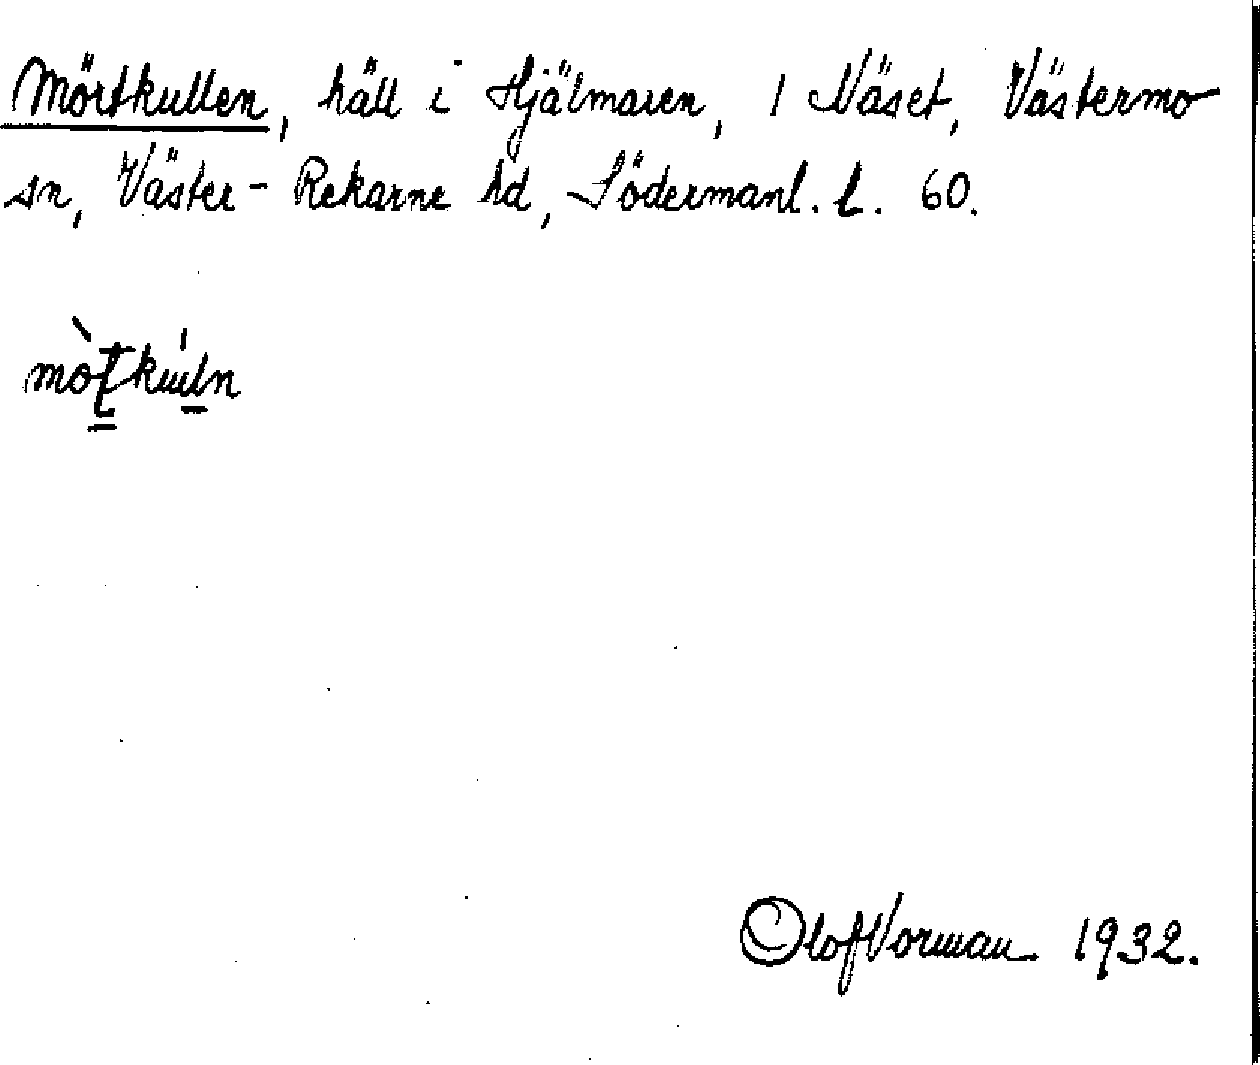 Mörtkullen, häll i Hjälmaren, 1 Näset, Västermo
sn, Väster-Rekarne hd, Södermanl. l. 60.
Olof Vorman 1932.